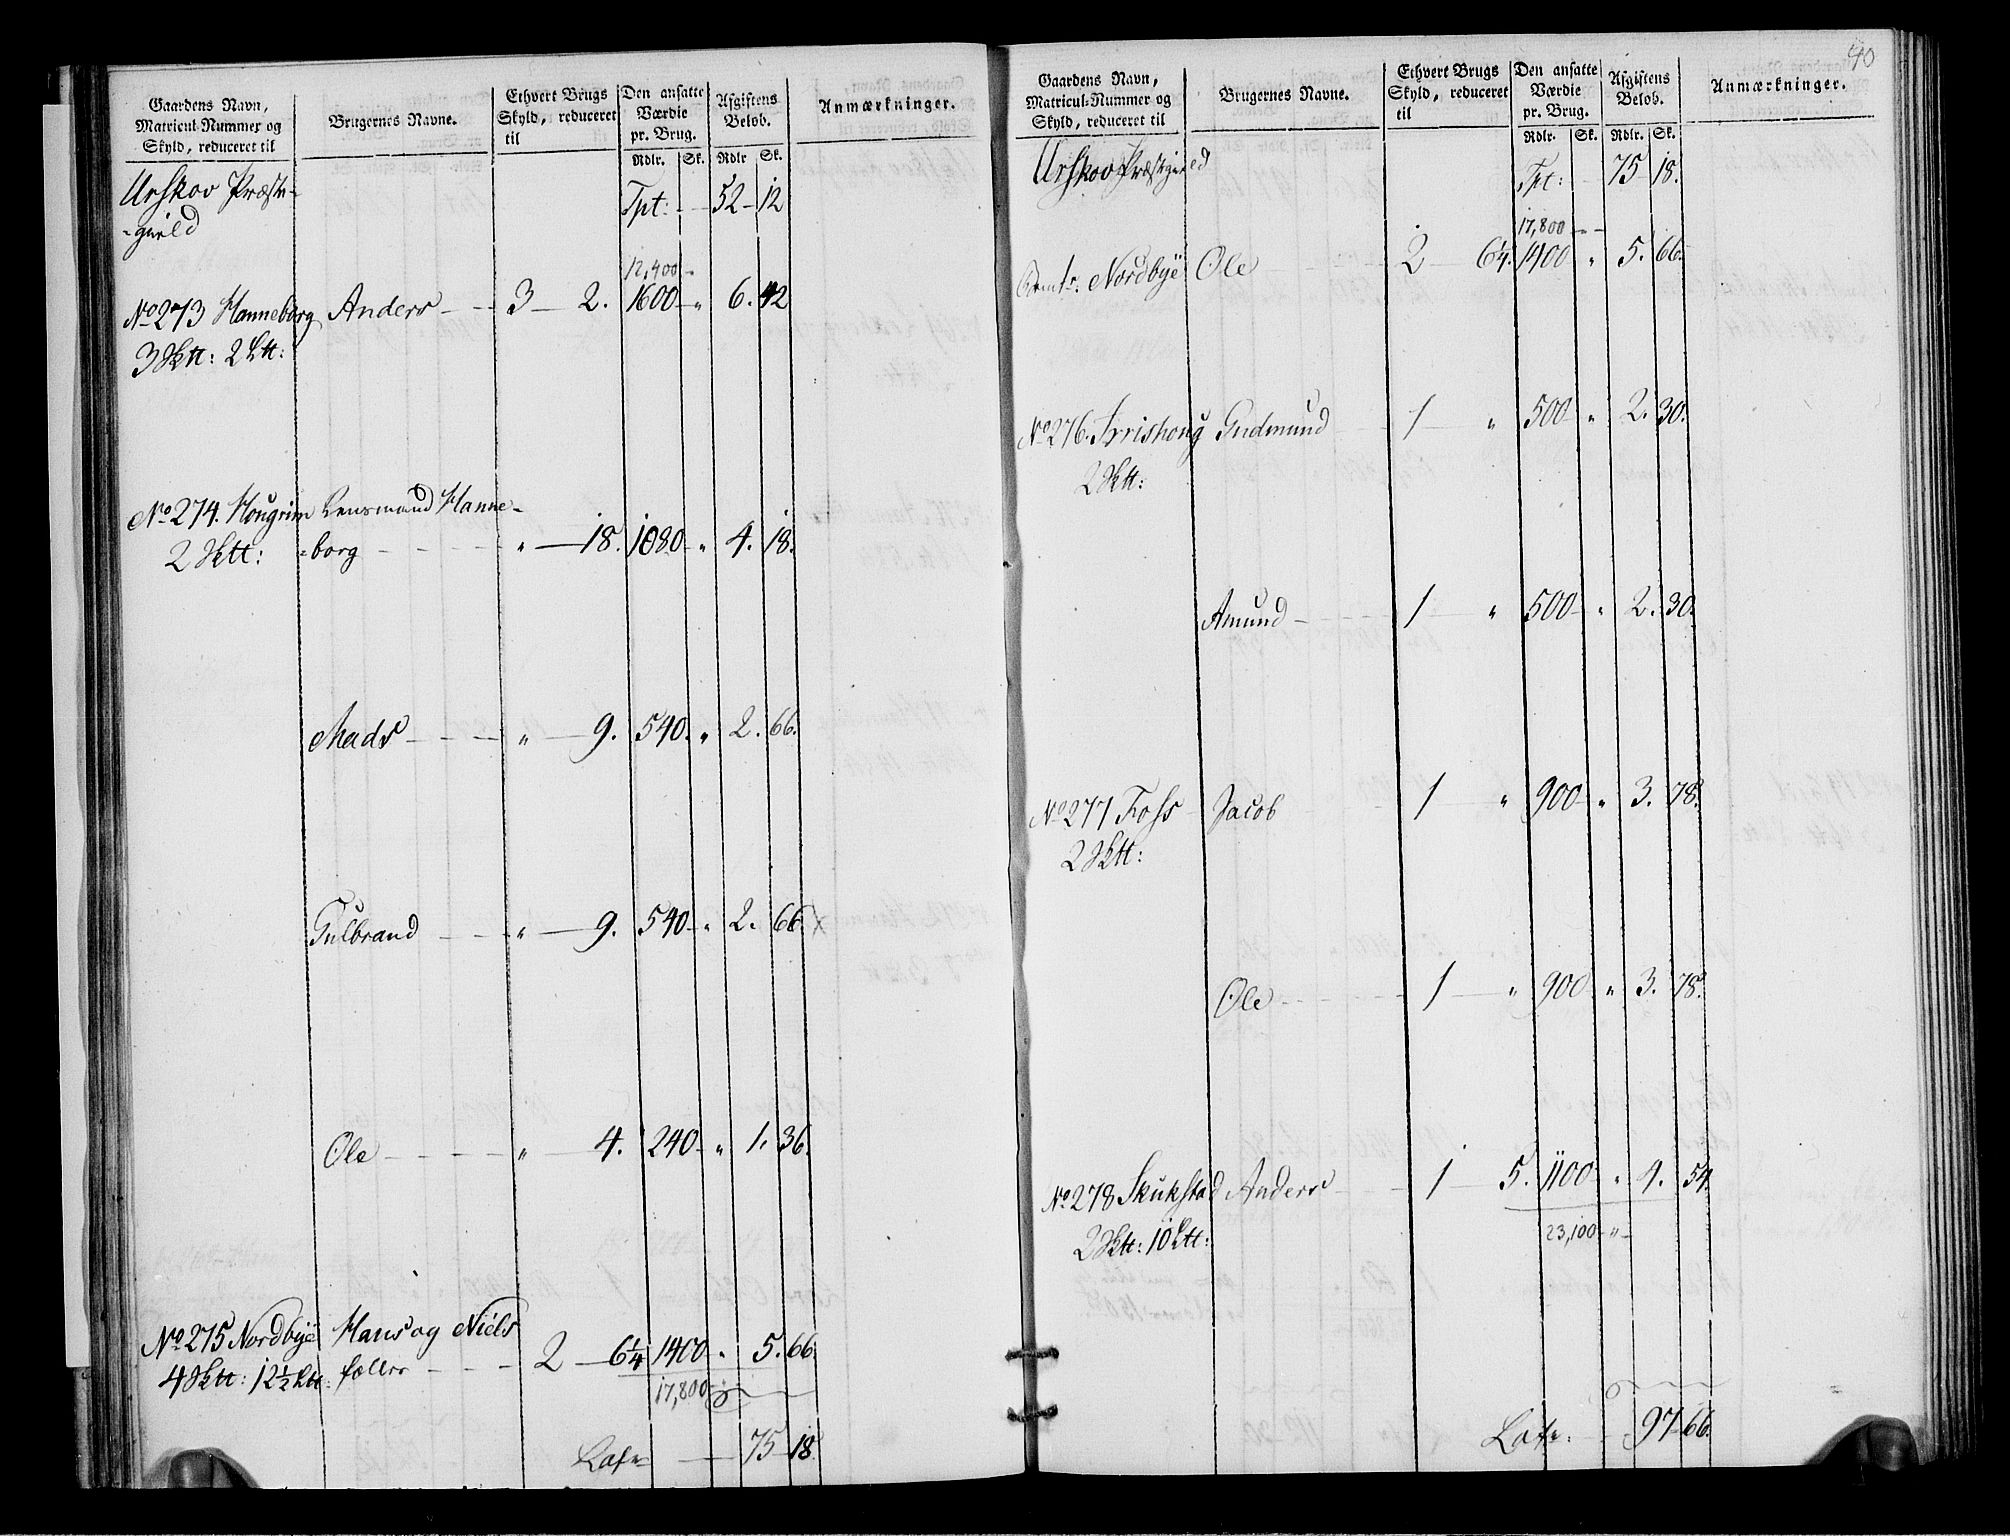 Gaardens Navn, Matricul-Nummer og Skyld, reduceret til | Brugernes Navne. | Ethvert Brugs Skyld, reduceret til | Den ansatte Værdie pr. Brug. Rdlr. Sk. | Afgiftens Beløb. Rdlr Sk. | Anmærkninger.
Urskov Præste- Tpt: 52 12
-gield
12,400
No 273 Hanneborg Anders 3 2. 1600 " 6. 42
3 Sktt: 2 Ltt:
No 274. Hougrim Lensmand Hanne-
2 Sktt: -borg " 18. 1080 " 4. 18.
Mads " 9. 540. " 2. 66.
Gulbrand " 9. 540 " 2. 66. x
Ole " 4. 240 " 1. 36.
No 275 Nordbye Hans og Niels
4 Sktt: 12½ Ltt: fælles 2 6¼ 1400 " 5. 66.
17,800
Lat 75 18.
40
Gaardens Navn, Matricul-Nummer og Skyld, reduceret til | Brugernes Navne. | Ethvert Brugs Skyld, reduceret til | Den ansatte Værdie pr. Brug. Rdlr. Sk. | Afgiftens Beløb. Rdlr. Sk. | Anmærkninger.
Urskov Præstegield Tpt: 75 18.
17,800
Nordbye Ole 2 6¼. 1400 " 5. 66.
No 276. Gudmund 1 " 500 " 2. 30.
2 Sktt:
Amund 1 " 500 " 2. 30.
No 277 Foss Jacob 1 " 900 " 3. 78.
2 Sktt:
Ole 1 " 900 " 3. 78.
No 278 Skukstad Anders 1 5. 1100 " 4. 54.
2 Sktt: 10 Ltt: 23,100 "
Lat 97 66.